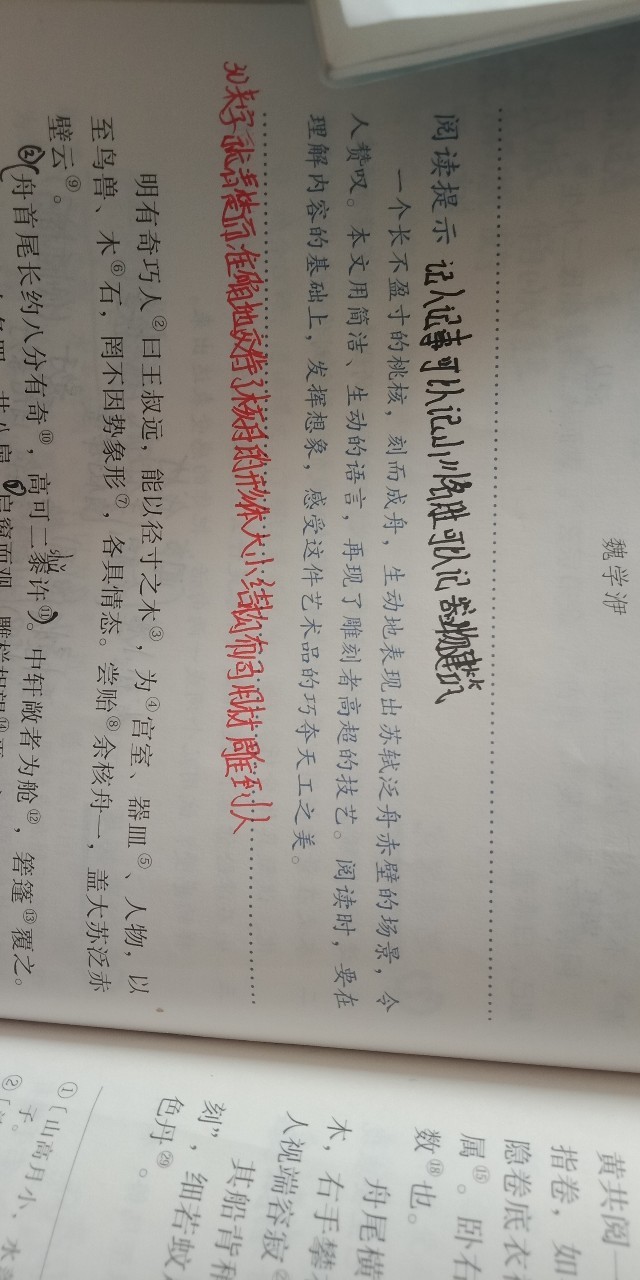 魏学洢
阅读提示 记人记事可以记山川名胜可以记器物建筑
一个长不盈寸的桃核，刻而成舟，生动地表现出苏轼泛舟赤壁的场景，令
人赞叹。本文用简洁、生动的语言，再现了雕刻者高超的技艺。阅读时，要在
理解内容的基础上，发挥想象，感受这件艺术品的巧夺天工之美。
准确地 了核舟的形体大小结构布局用材雕刻人
明有奇巧人②曰王叔远，能以径寸之木③，为④宫室、器皿⑤、人物，以
至鸟兽、木⑥石，罔不因势象形⑦，各具情态。尝贻⑧余核舟一，盖大苏泛赤
壁云⑨。
(2)舟首尾长约八分有奇⑩，高可二黍许⑪。中轩敞者为舱⑫，箬篷⑬覆之。
启窗而观，雕栏相望⑭焉
黄共阅一
指卷，如
隐卷底衣
属⑮。卧右
数⑱也。
舟尾横
木，右手攀
人视端容寂
其船背稍
刻”，细若蚊
色丹⑳。
①〔山高月小，水
子。
②〔